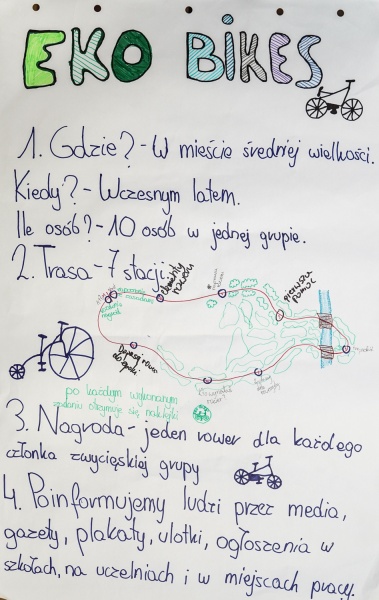 EKO BIKES
1. Gdzie? - W mieście średniej wielkości.
Kiedy? - Wczesnym latem.
Ile osób? - 10 osób w jednej grupie.
2. Trasa - 7 stacji:
elementy roweru
pierwsza pomoc
Dopasuj rower do epoki
po każdym wykonanym
zadaniu otrzymuje się naklejki
3. Nagroda - jeden rower dla każdego
członka zwycięskiej grupy
4. Poinformujemy ludzi przez media,
gazety, plakaty, ulotki, ogłoszenia w
szkołach, na uczelniach i w miejscach pracy.